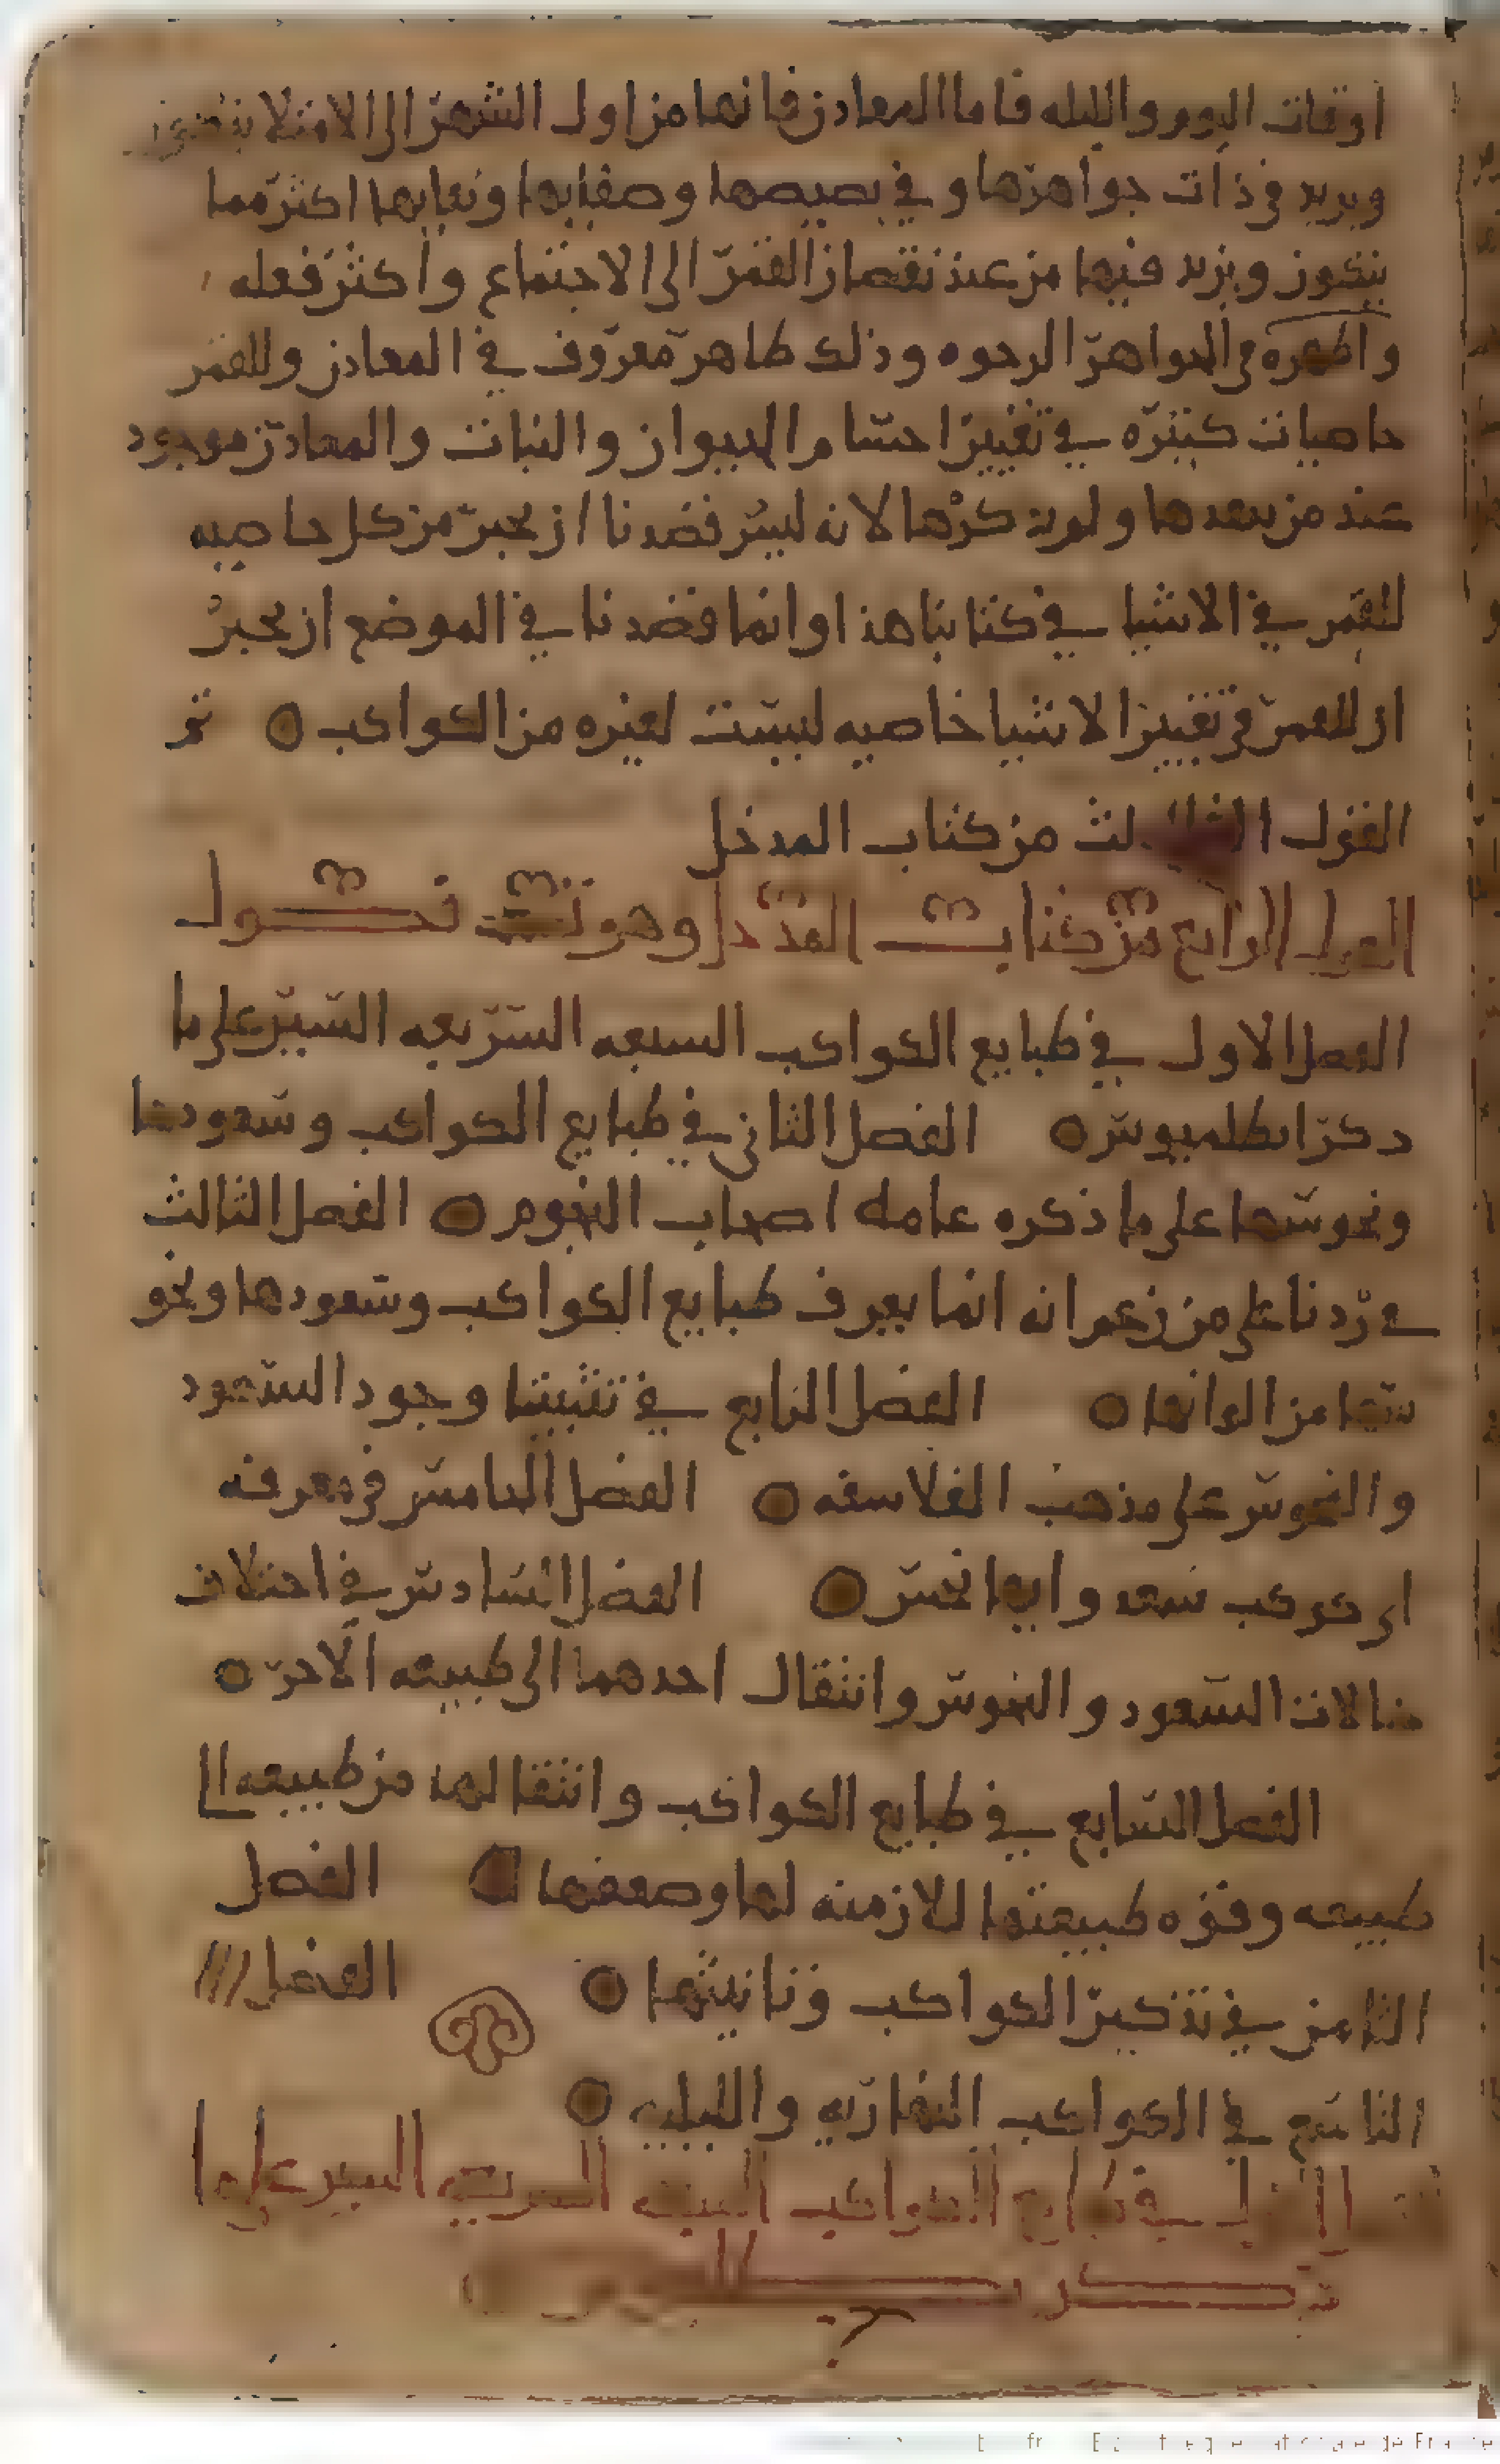 اوقات اليوم والليله فاما المعادن فانها من اول الشهر الى الامتلا يتكون
ويزيد في ذات جواهرها وفي بصيصها وصفايها ونقايها اكثر مما
يتكون ويزيد فيها من عند نقصان القمر الى الاجتماع واكثر فعله
واظهره في الجواهر الرخوه وذلك ظاهر معروف في المعادن وللقمر
خاصيات كثيره في تغيير اجسام الحيوان والنبات والمعادن موجود
عند من بعدها ولم نذكرها لانه ليس قصدنا ان نخبر من كل خاصيه
للقمر في الاشيا في كتابنا هذا وانما قصدنا في الموضع ان نخبر
ان للقمر في تغيير الاشيا خاصيه ليست لغيره من الكواكب ○ تم
القول الثالث من كتاب المدخل
القول الرابع من كتاب المدخل وهو تسعه فصول
الفصل الاول في طبايع الكواكب السبعه السريعه السير على ما
ذكر ابطلميوس ○ الفصل الثاني في طبايع الكواكب وسعودها
ونحوسها على ما ذكره عامه اصحاب النجوم ○ الفصل الثالث
في ردنا على من زعم انه انما يعرف طبايع الكواكب وسعودها ونحو
سها من الوانها ○ الفصل الرابع في تثبيتنا وجود السعود
والنحوس على مذهب الفلاسفه ○ الفصل الخامس في معرفه
اي كوكب سعد وايها نحس ○ الفصل السادس في اختلاف
حالات السعود والنحوس وانتقال احدهما الى طبيعه الاخر ○
الفصل السابع في طبايع الكواكب وانتقالها من طبيعه الى
طبيعه وقوه طبيعتها اللازمه لها وضعفها ○ الفصل
الثامن في تذكير الكواكب وتانيثها ○ الفصل
التاسع في الكواكب النهاريه والليليه ○
الاول في طبايع الكواكب السبعه السريعه السير على ما
ذكر